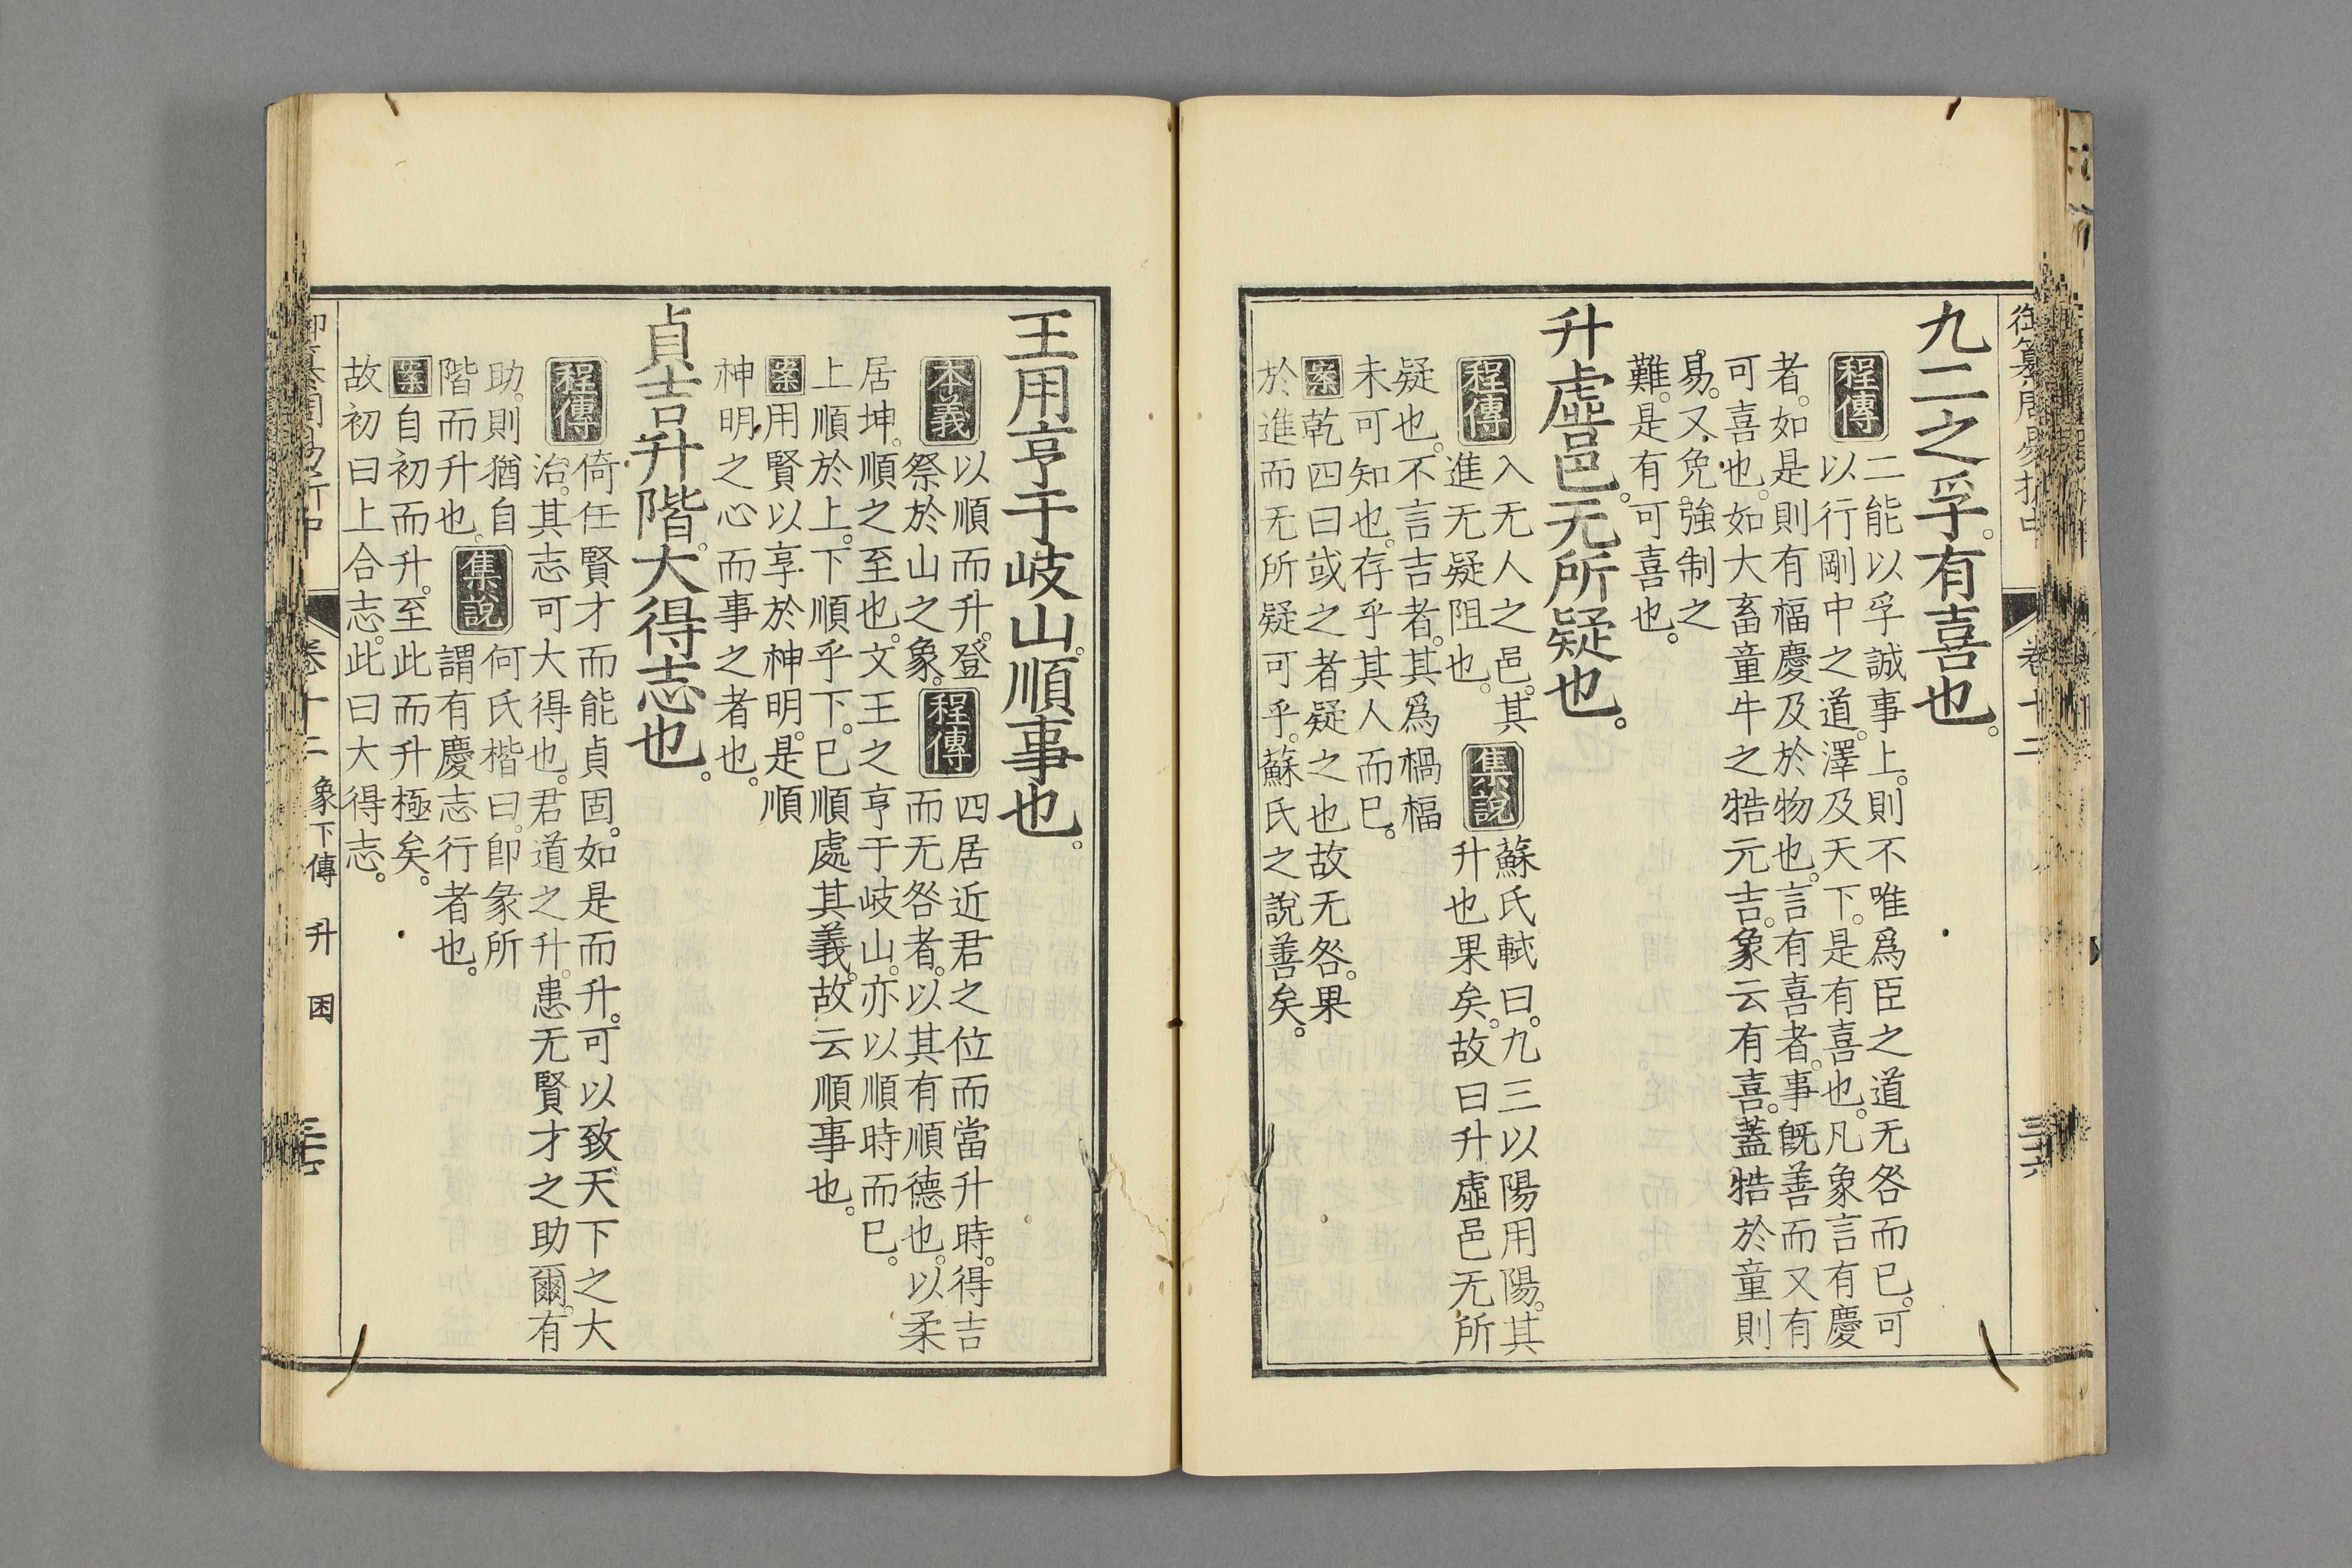 御纂周易折中 卷十二 三六
九二之孚。有喜也。
程傳
二能以孚誠事上。則不唯爲臣之道无咎而已。可
以行剛中之道。澤及天下。是有喜也。凡象言有慶
者。如是則有福慶及於物也。言有喜者。事既善而又有
可喜也。如大畜童牛之牿元吉。象云有喜。蓋牿於童則
易。又免強制之
難。是有可喜也。
升虛邑。无所疑也。
程傳
入无人之邑。其
進无疑阻也。
集說
蘇氏軾曰。九三以陽用陽。其
升也果矣。故曰升虛邑无所
疑也。不言吉者。其爲禍福
未可知也。存乎其人而已。
案乾四曰或之者疑之也故无咎。果
於進而无所疑可乎。蘇氏之說善矣。
王用亨于岐山。順事也。
本義
以順而升。登
祭於山之象。
程傳
四居近君之位而當升時。得吉
而无咎者。以其有順德也。以柔
居坤。順之至也。文王之亨于岐山。亦以順時而已。
上順於上。下順乎下。已順處其義。故云順事也。
案用賢以享於神明。是順
神明之心而事之者也。
貞吉升階。大得志也。
程傳
倚任賢才而能貞固。如是而升。可以致天下之大
治。其志可大得也。君道之升。患无賢才之助爾。有
助。則猶自
階而升也。
集說
何氏楷曰。卽彖所
謂有慶志行者也。
案自初而升。至此而升極矣。
故初曰上合志。此曰大得志。
御纂周易折中 卷十二 象下傳 升 困 三七